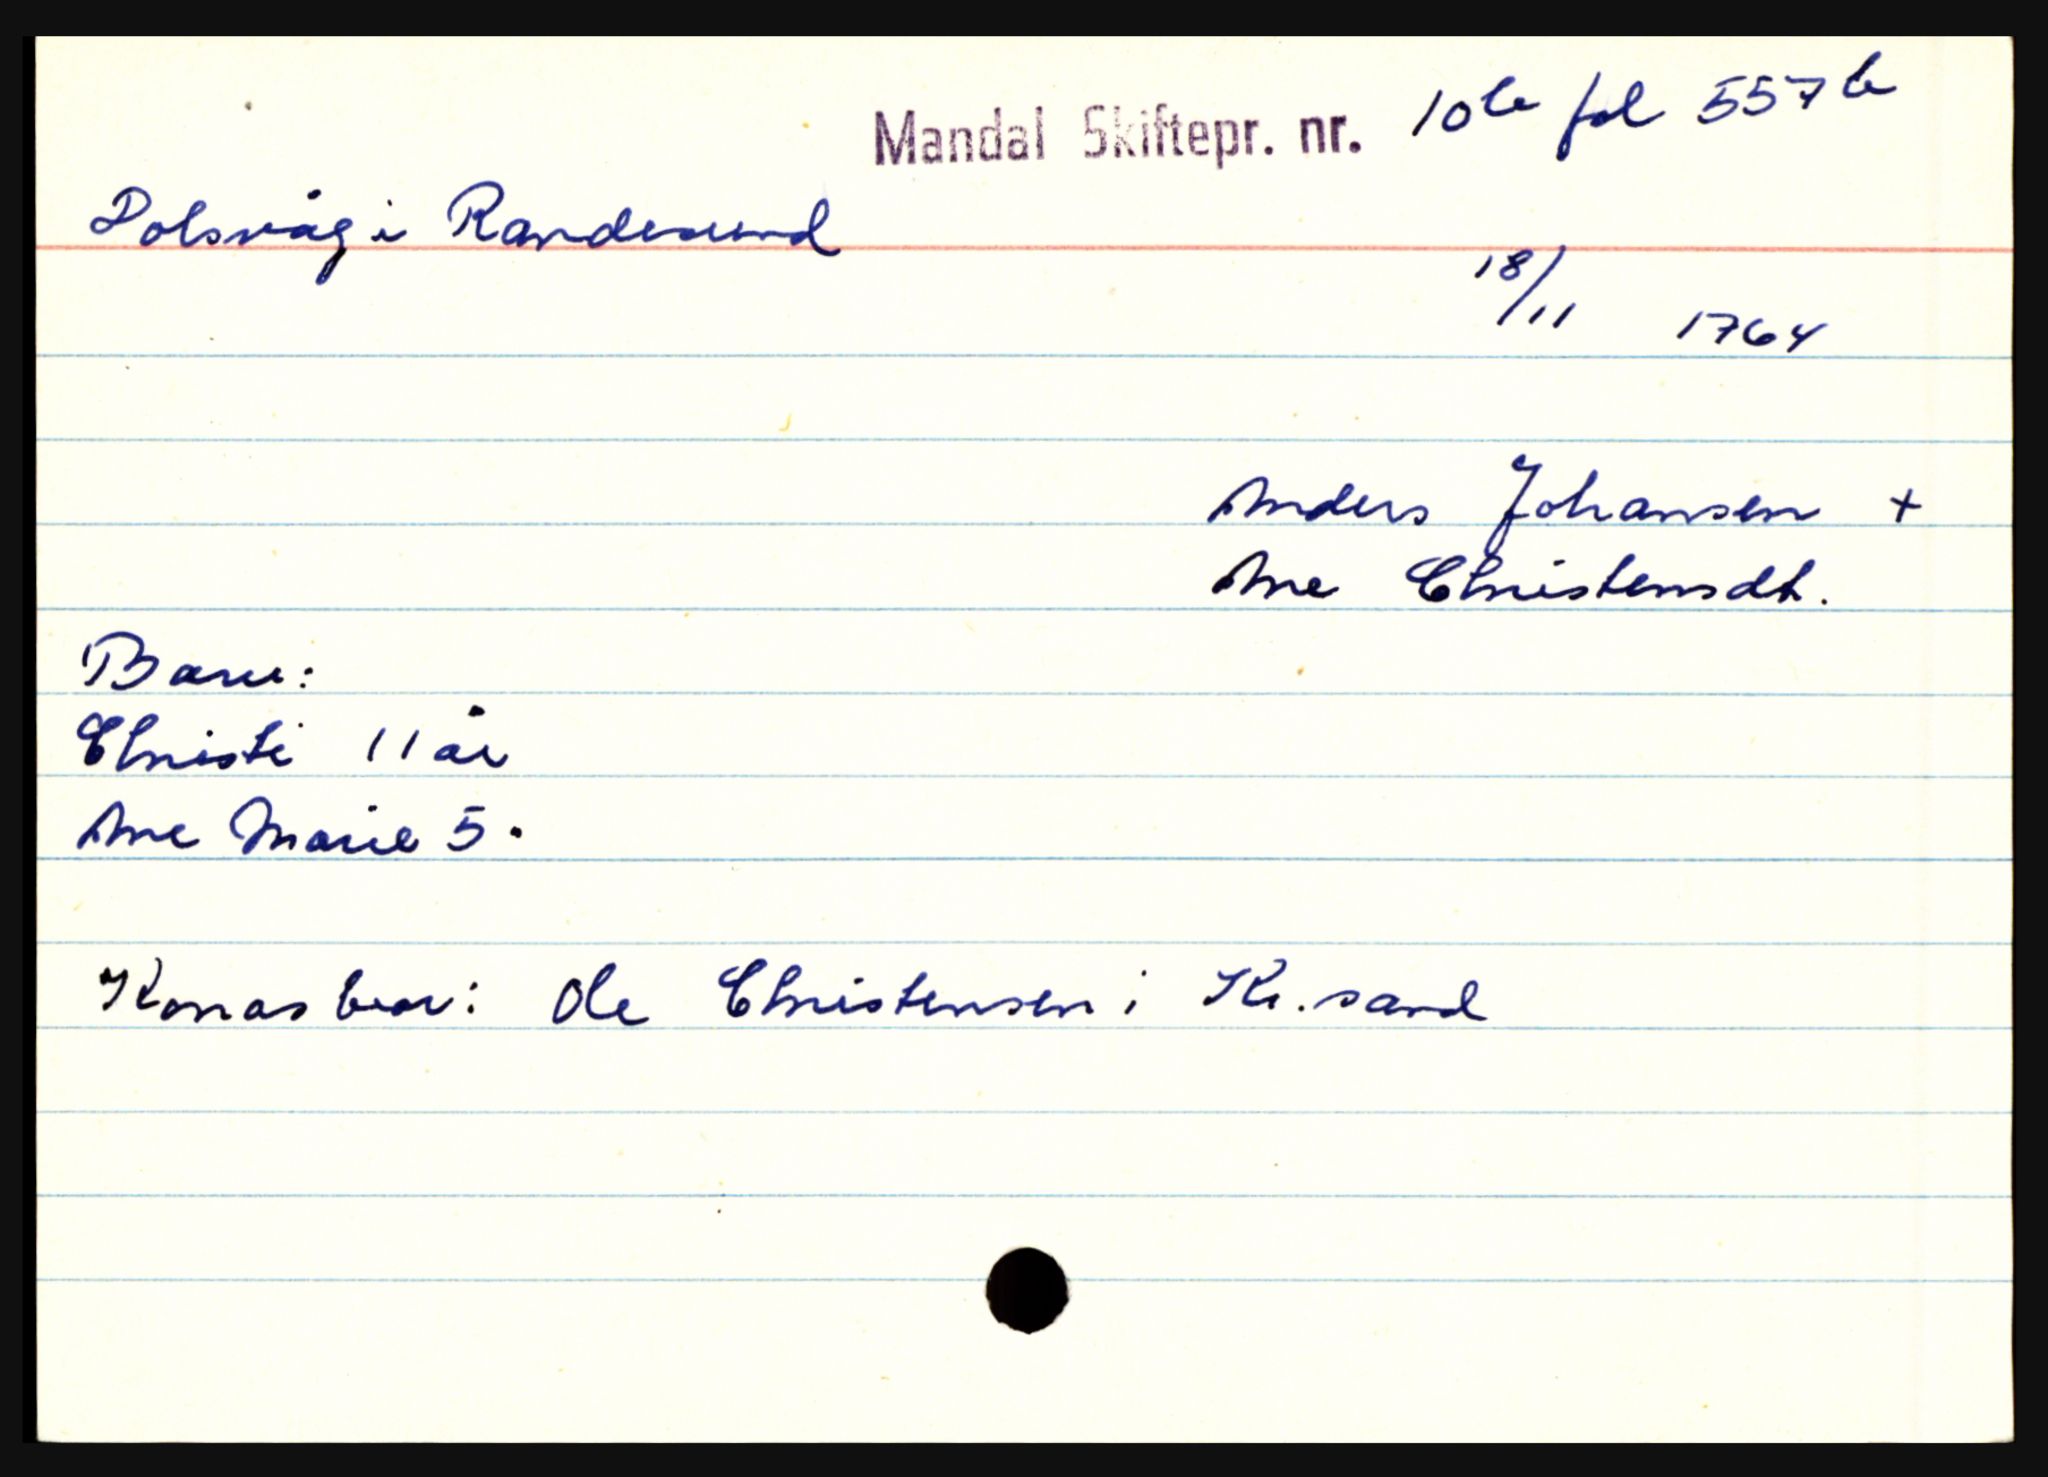 Mandal Skiftepr. nr. 10b fol 557b
Dolsvåg i Randesund
18/11 1764
Anders Johansen +
Ane Christensdt.
Barn:
Christi 11 år
Ane Marie 5 -
Konas bror: Ole Christensen i Kr.sand